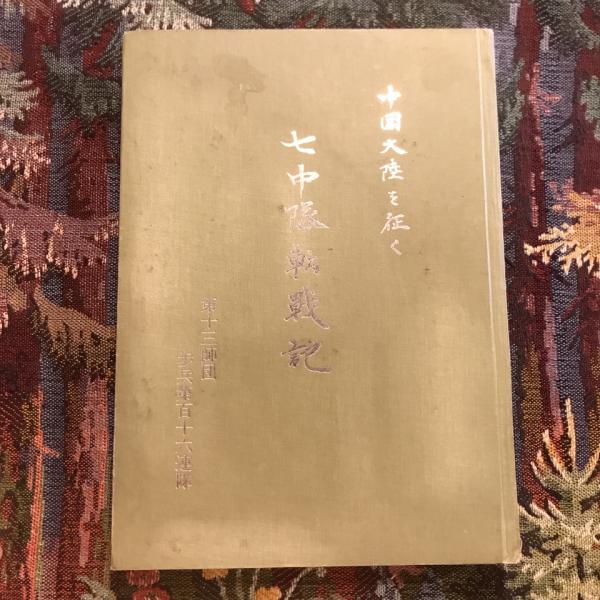 中国大陸を征く
七中隊転戦記
第十三師団
歩兵第百十六連隊